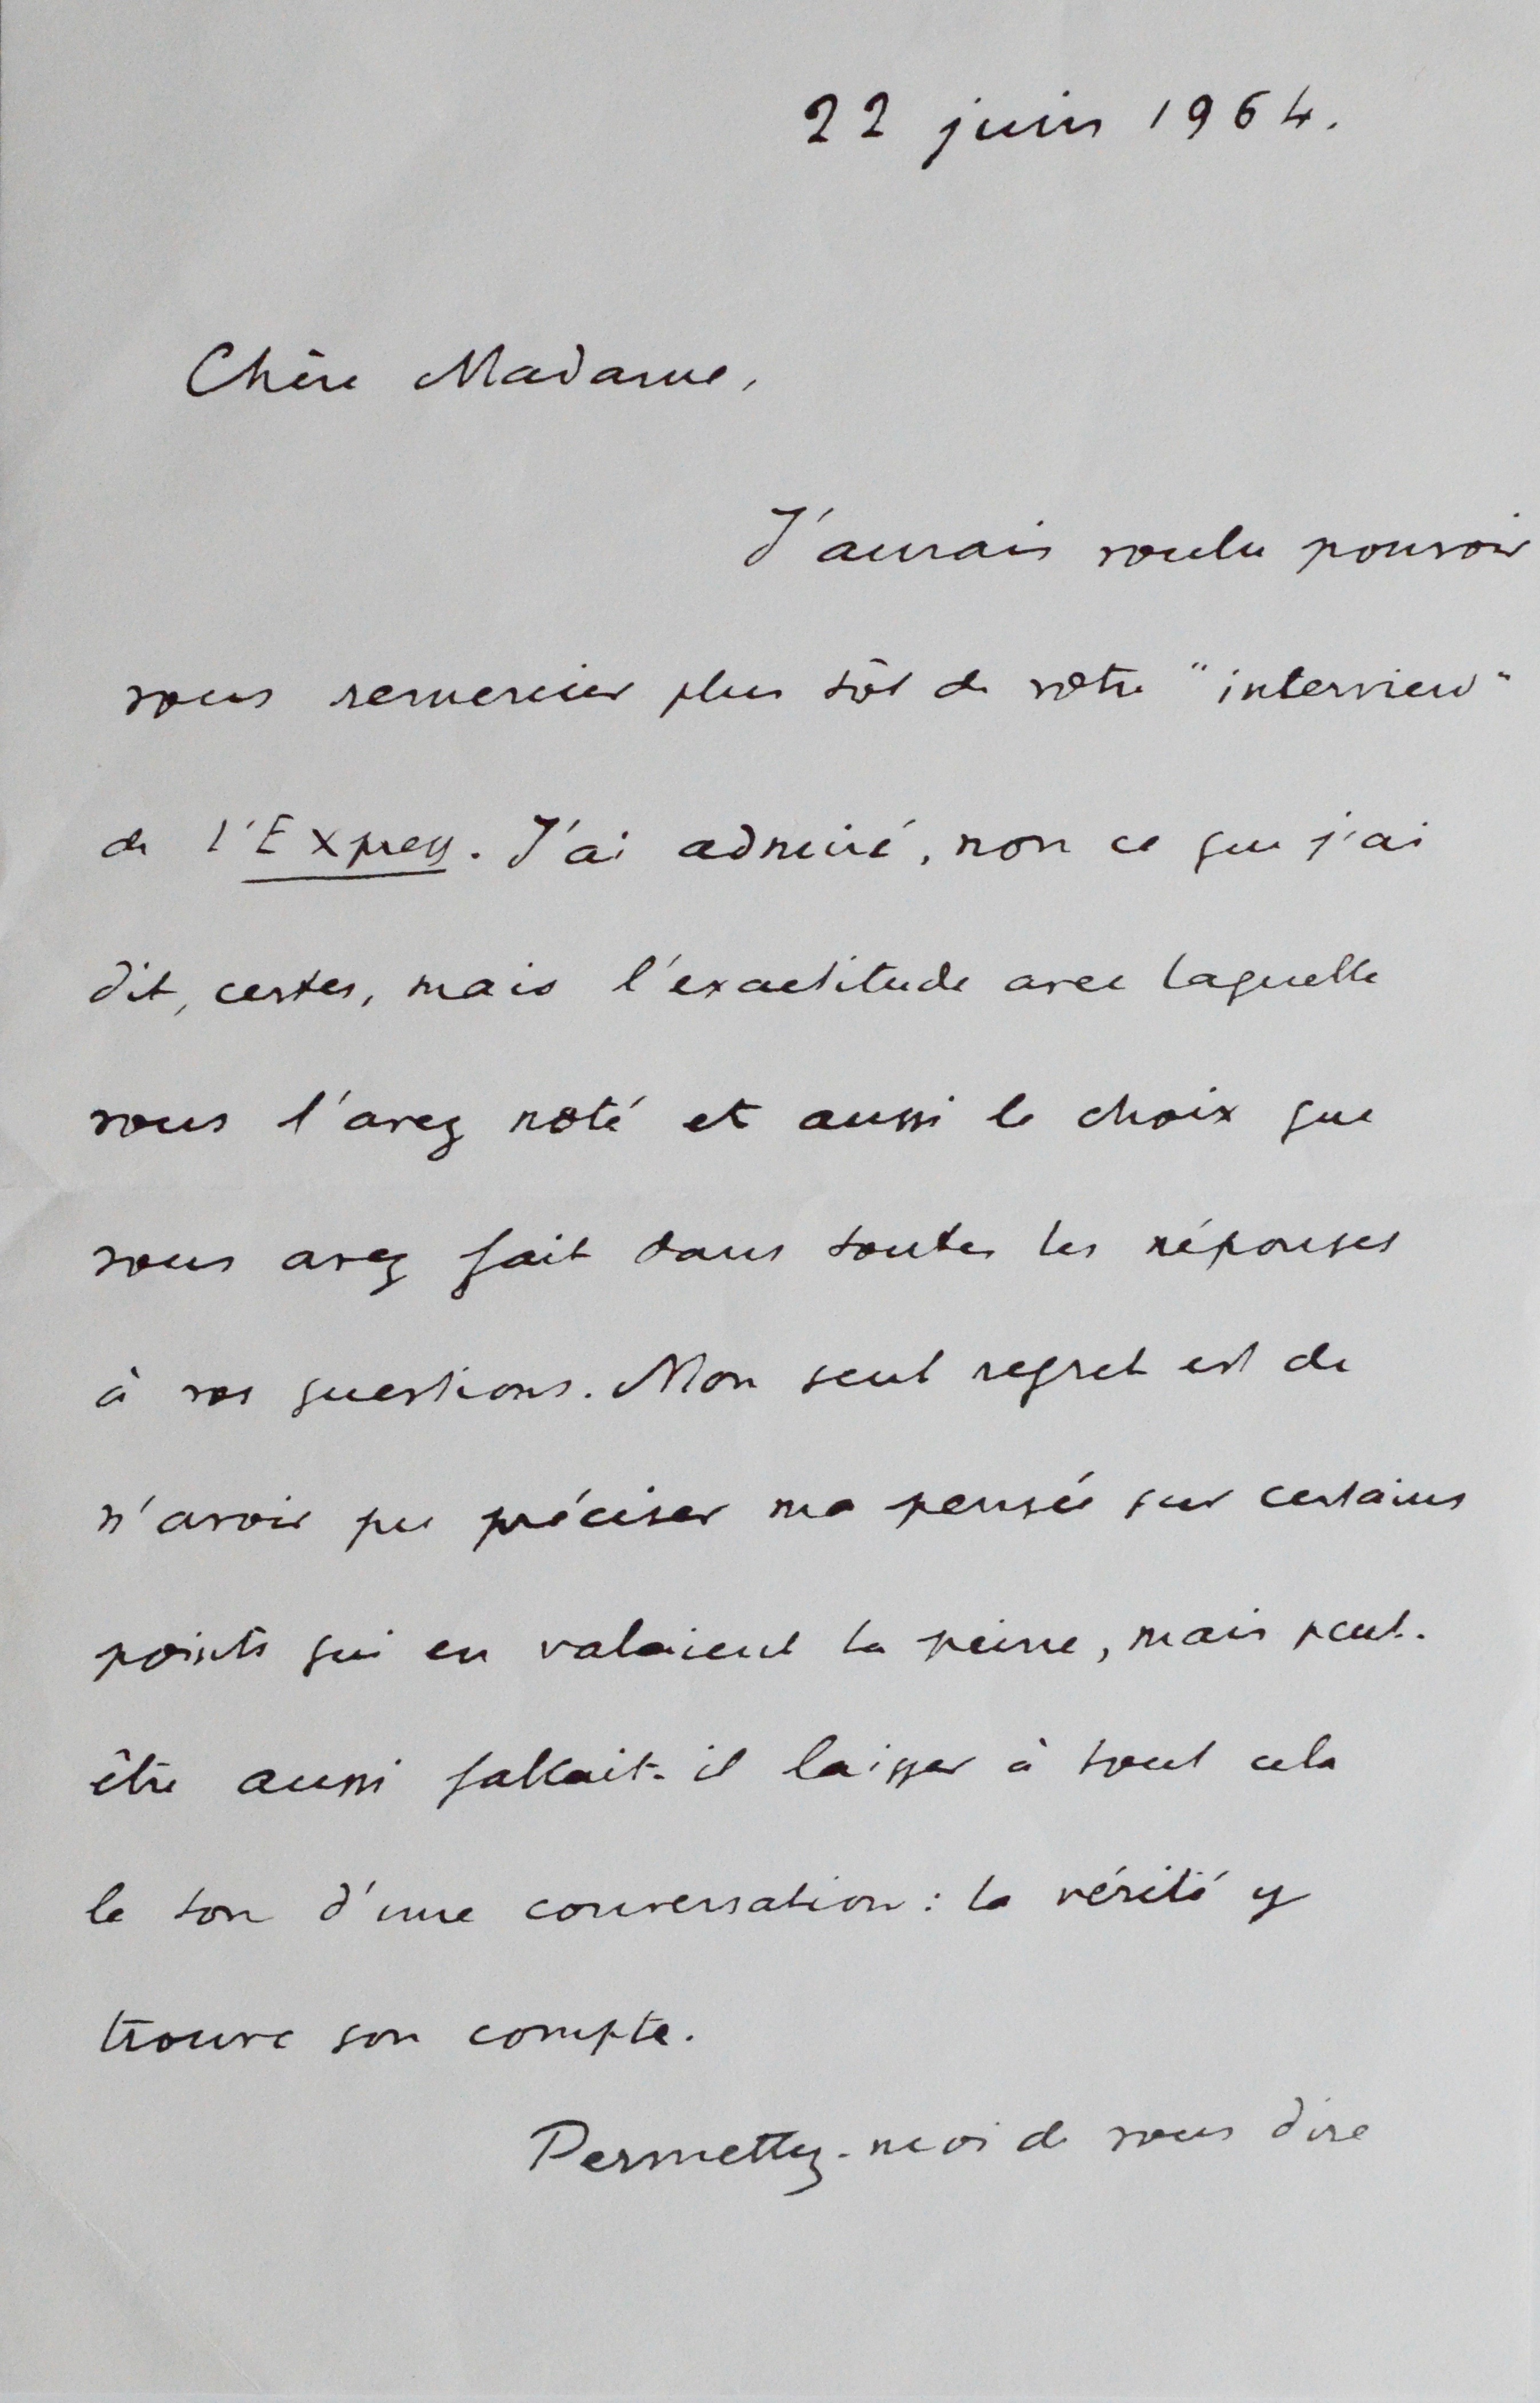 22 juin 1964.
Chère Madame,
J'aurais voulu pouvoir
vous remercier plus tôt de votre "interview"
de l'Express. J'ai admiré, non ce que j'ai
dit, certes, mais l'exactitude avec laquelle
vous l'avez noté et aussi le choix que
vous avez fait dans toutes les réponses
à vos questions. Mon seul regret est de
n'avoir pu préciser ma pensée sur certains
points qui en valaient la peine, mais peut-
être aussi fallait-il laisser à tout cela
le ton d'une conversation : la vérité y
trouve son compte.
Permettez-moi de vous dire